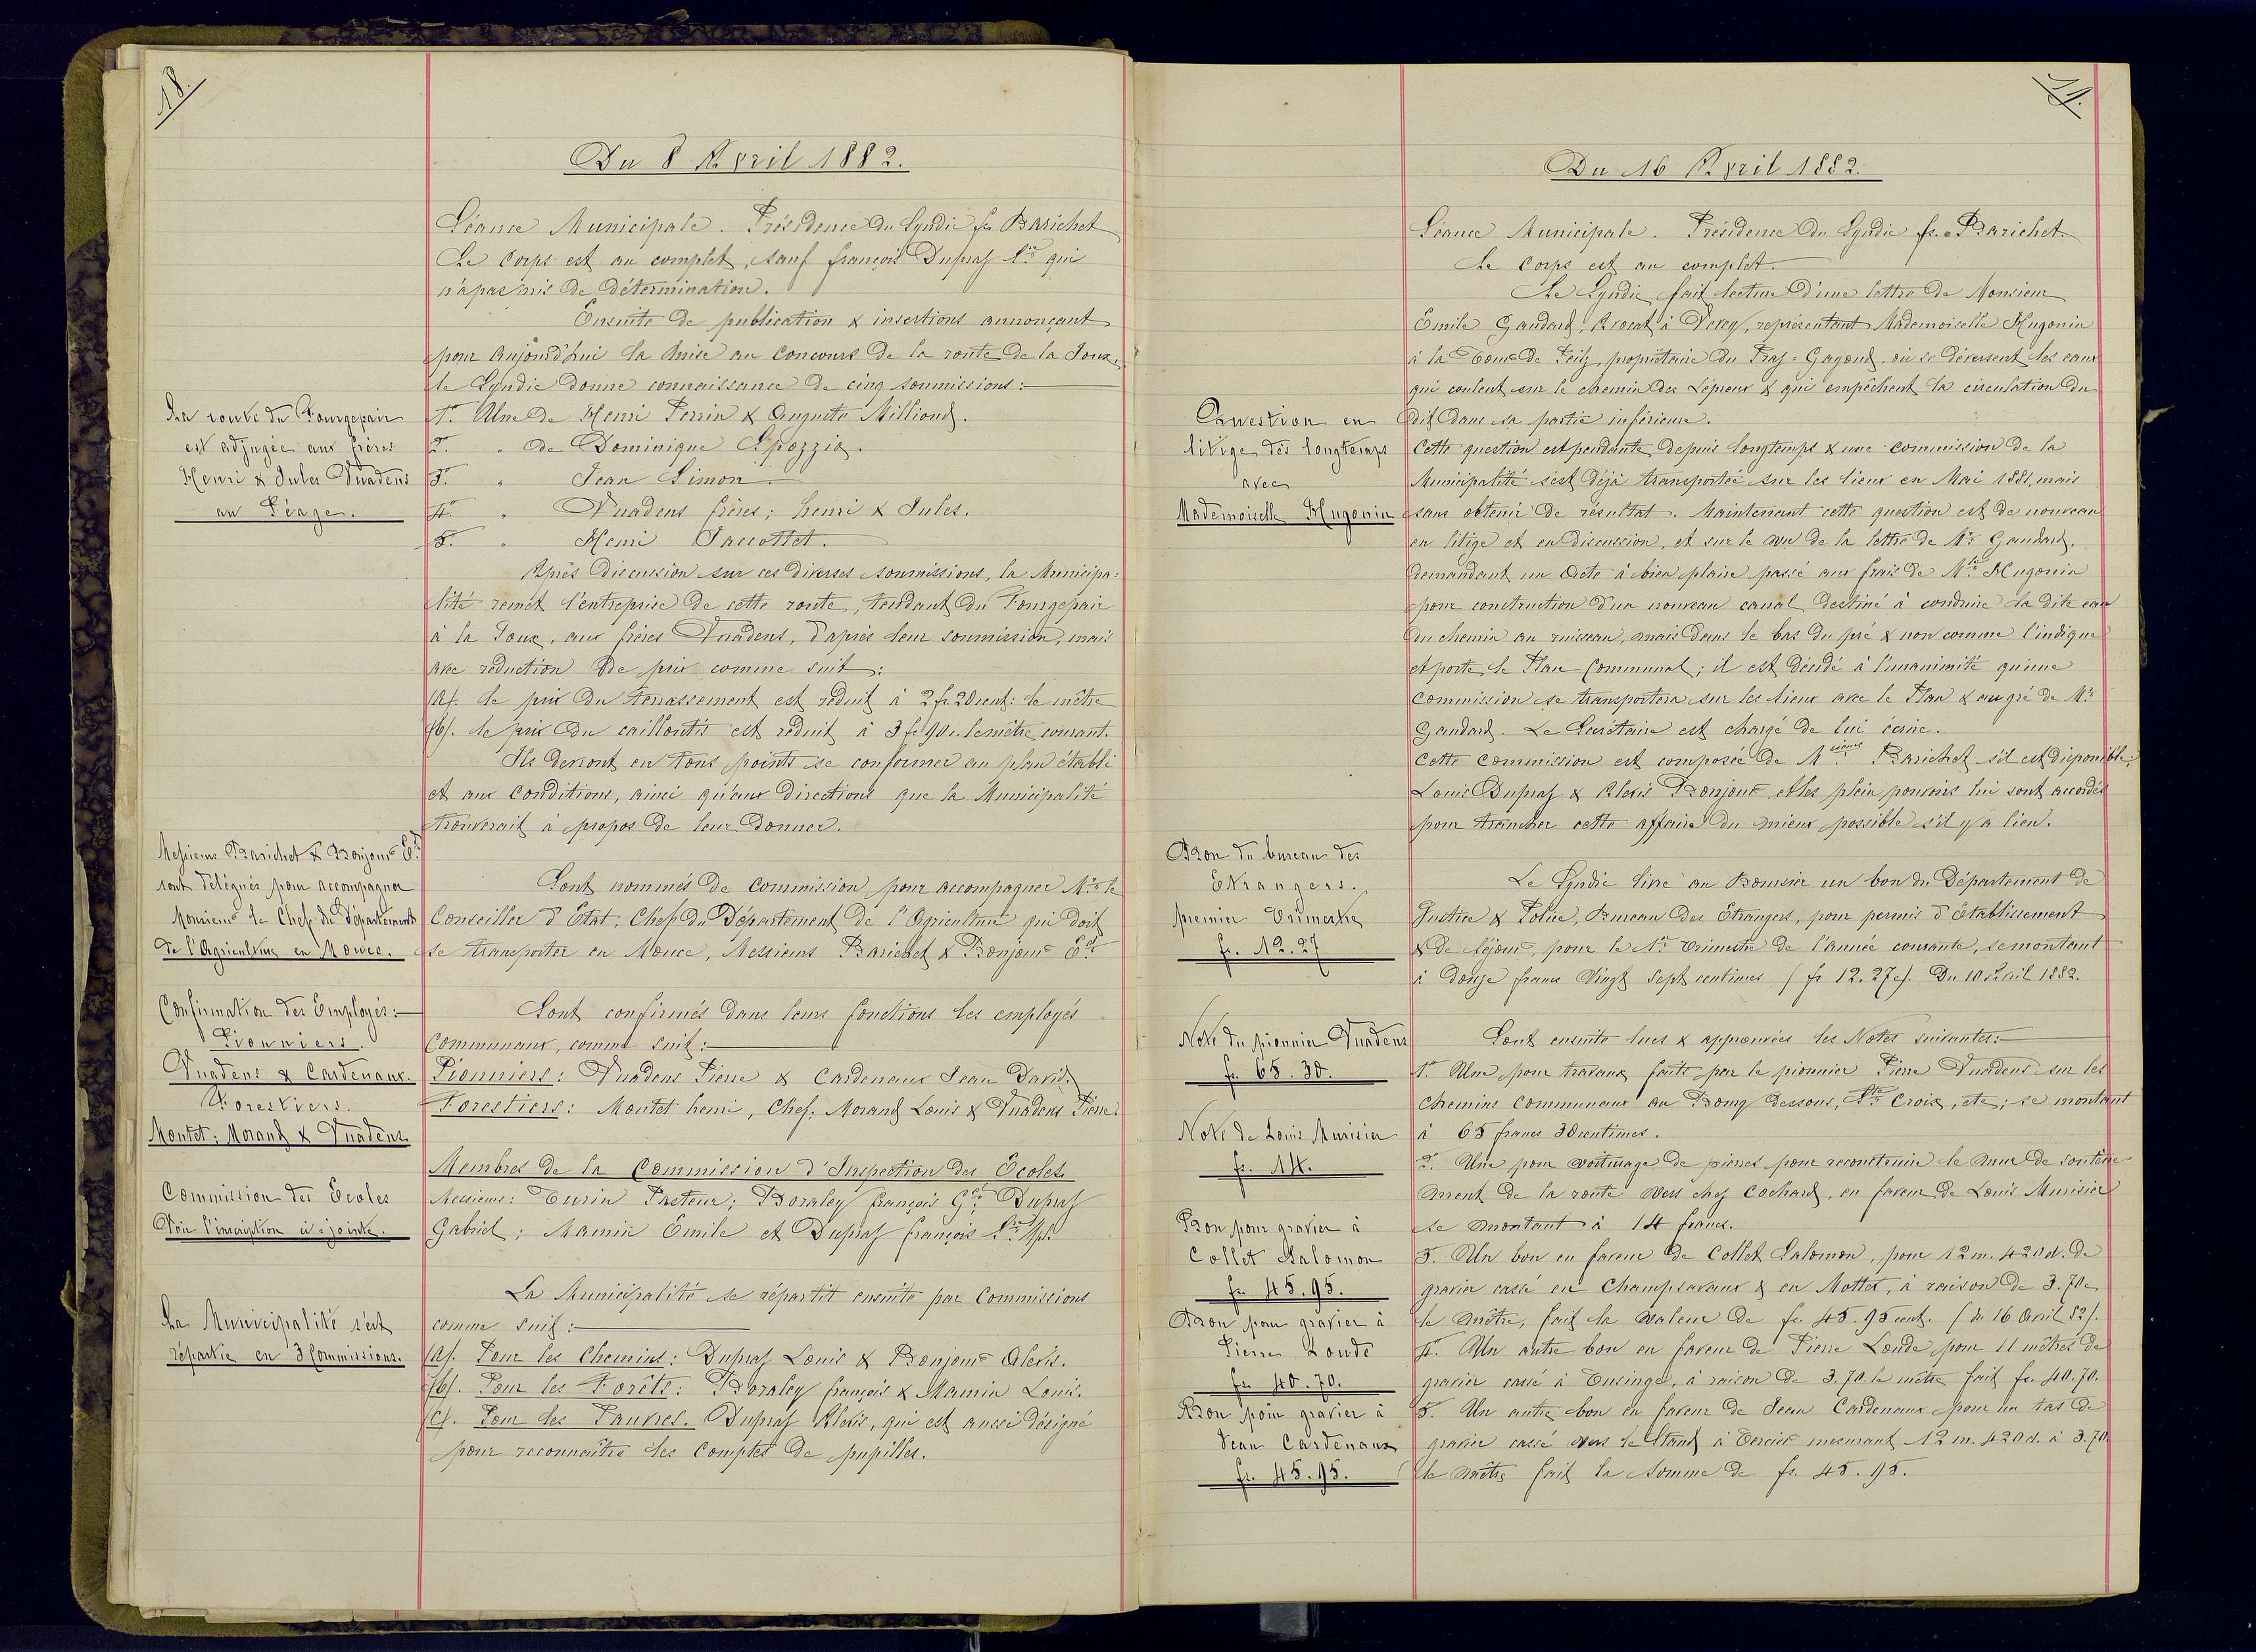 18.
Du 8 Avril 1882.
Séance Municipale. Présidence du Syndic fs Barichet
Le Corps est au complet, sauf françois Dupraz Sre qui
n'a pas pris de détermination.
Ensuite de publication & insertions annonçant
pour aujourd'hui la mise au Concours de la route de la Joux,
le Syndic donne connaissance de cinq soumissions:
La route du Fourgepair
est adjugée aux frères
Henri & Jules Vuadens
au Péage.
1o Une de Henri Perrin & Auguste Milliond.
2o " de Dominique Spozzia.
3o " Jean Simon
4o " Vuadens frères; henri & Jules.
5o " Henri Jaccottet.
Après discussion sur ces diverses soumissions, la Municipa=
lité remet l'entreprise de cette route, tendant du Fourgepair
à la Joux, aux frères Vuadens, d'après leur soumission, mais
avec réduction de prix comme suit:
(a). le prix du terrassement est réduit à 2 fr. 20 cent: le mètre
(b). le prix du cailloutis est réduit à 3 fr 90 c. le mètre courant.
Ils devront en tous points se conformer au plan établi
et aux Conditions, ainsi qu'aux directions que la Municipalité
trouverait à propos de leur donner.
Messieurs Barichet & Bonjour Et
sont délégués pour accompagner
Monsieur le Chef du Département
de l'Agriculture en Mouce.
Sont nommés de Commission pour accompagner Mr le
Conseiller d'Etat, Chef du Département de l'Agriculture qui doit
se transporter en Mouce, Messieurs Barichet & Bonjour Et
Confirmation des Employés:
Pionniers.
Vuadens & Cardenaux.
Forestiers.
Montet; Morand & Vuadens.
Sont confirmés dans leurs fonctions les employés
Communaux, comme suit:
Pionniers: Vuadens Pierre & Cardenaux Jean David.
Forestiers: Montet henri, Chef. Morand Louis & Vuadens Pierre.
Commission des Ecoles
Voir l'inscription ci-jointe.
Membres de la Commission d'Inspection des Ecoles.
Messieurs: Turin Pasteur; Boraley françois Gel Dupraz
Gabriel; Mamin Emile et Dupraz françois Sre Mpl.
La Municipalité s'est
répartie en 3 Commissions.
La Municipalité se répartit ensuite par Commissions
comme suit:
(a). Pour les Chemins: Dupraz Louis & Bonjour Alexis.
(b). Pour les Forêts: Boraley françois & Mamin Louis.
(c). Pour les Pauvres. Dupraz Alexis, qui est aussi désigné
pour reconnaître les Comptes de pupilles.
19.
Du 16 Avril 1882.
Séance Municipale. Présidence du Syndic fs. Barichet.
Le Corps est au complet.
Le Syndic fait lecture d'une lettre de Monsieur
Emile Gaudard, Avocat à Vevey, représentant Mademoiselle Hugonin
à la Tour de Peilz, propriétaire du Praz-Gagoud, où se déversent les eaux
qui coulent sur le chemin des Lépreux & qui empêchent la circulation du
dit dans sa partie inférieure.
Question en
litige dès longtemps
avec
Mademoiselle Hugonin
Cette question est pendante depuis longtemps & une commission de la
Municipalité s'est déjà transportée sur les lieux en Mai 1881, mais
sans obtenir de résultat. Maintenant cette question est de nouveau
en litige et en discussion, et sur le vu de la lettre de Mr Gaudard,
demandant un Acte à bien plaire passé aux frais de Mlle Hugonin
pour construction d'un nouveau canal destiné à conduire la dite eau
du chemin au ruisseau, mais dans le bas du pré & non comme l'indique
et porte le Plan Communal; il est décidé à l'unanimité qu'une
Commission se transportera sur les lieux avec le Plan & au gré de Mr
Gaudard. Le Secrétaire est chargé de lui écrire.
Cette Commission est composée de Msieurs Barichet s'il est disponible;
Louis Dupraz & Alexis Bonjour, et les plein pouvoirs lui sont accordés
pour trancher cette affaire du mieux possible s'il y a lieu.
Bon du bureau des
Etrangers.
premier Trimestre
fr. 12.27
Le Syndic livre au Boursier un bon du Département de
Justice & Police, Bureau des Etrangers, pour permis d'établissement
& de séjour, pour le 1er Trimestre de l'année courante, se montant
à douze francs Vingt Sept centimes (fr 12.27 c). Du 10 Avril 1882.
Note du pionnier Vuadens
fr. 65.30.
Sont ensuite lues & approuvées les Notes suivantes:
1o Une pour travaux faits par le pionnier Pierre Vuadens sur les
chemins Communaux au Bourg dessous, Ste Croix, etc; se montant
à 65 francs 30 centimes.
Note de Louis Murisier
fr. 14.
2o Une pour voiturage de pierres pour reconstruire le mur de soutène
ment de la route vers chez Cochard, en faveur de Louis Murisier
se montant à 14 francs.
Bon pour gravier à
Collet Salomon
fr. 45.95.
3. Un bon en faveur de Collet Salomon, pour 12 m. 420 d. de
gravier cassé en Champsavaux & en Mottex, à raison de 3.70 c
le mètre, fait la valeur de fr. 45.95 cent. (du 16 Avril 82).
Bon pour gravier à
Pierre Loude
fr. 40.70.
4. Un autre bon en faveur de Pierre Loude pour 11 mètres de
gravier cassé à Tusinge, à raison de 3.70. le mètre fait fr. 40.70.
Bon pour gravier à
Jean Cardenaux
fr. 45.95.
5. Un autre bon en faveur de Jean Cardenaux pour un tas de
gravier cassé vers le Stand à Tercier mesurant 12 m. 420 d. à 3.70
le mètre fait la somme de fr. 45.95.